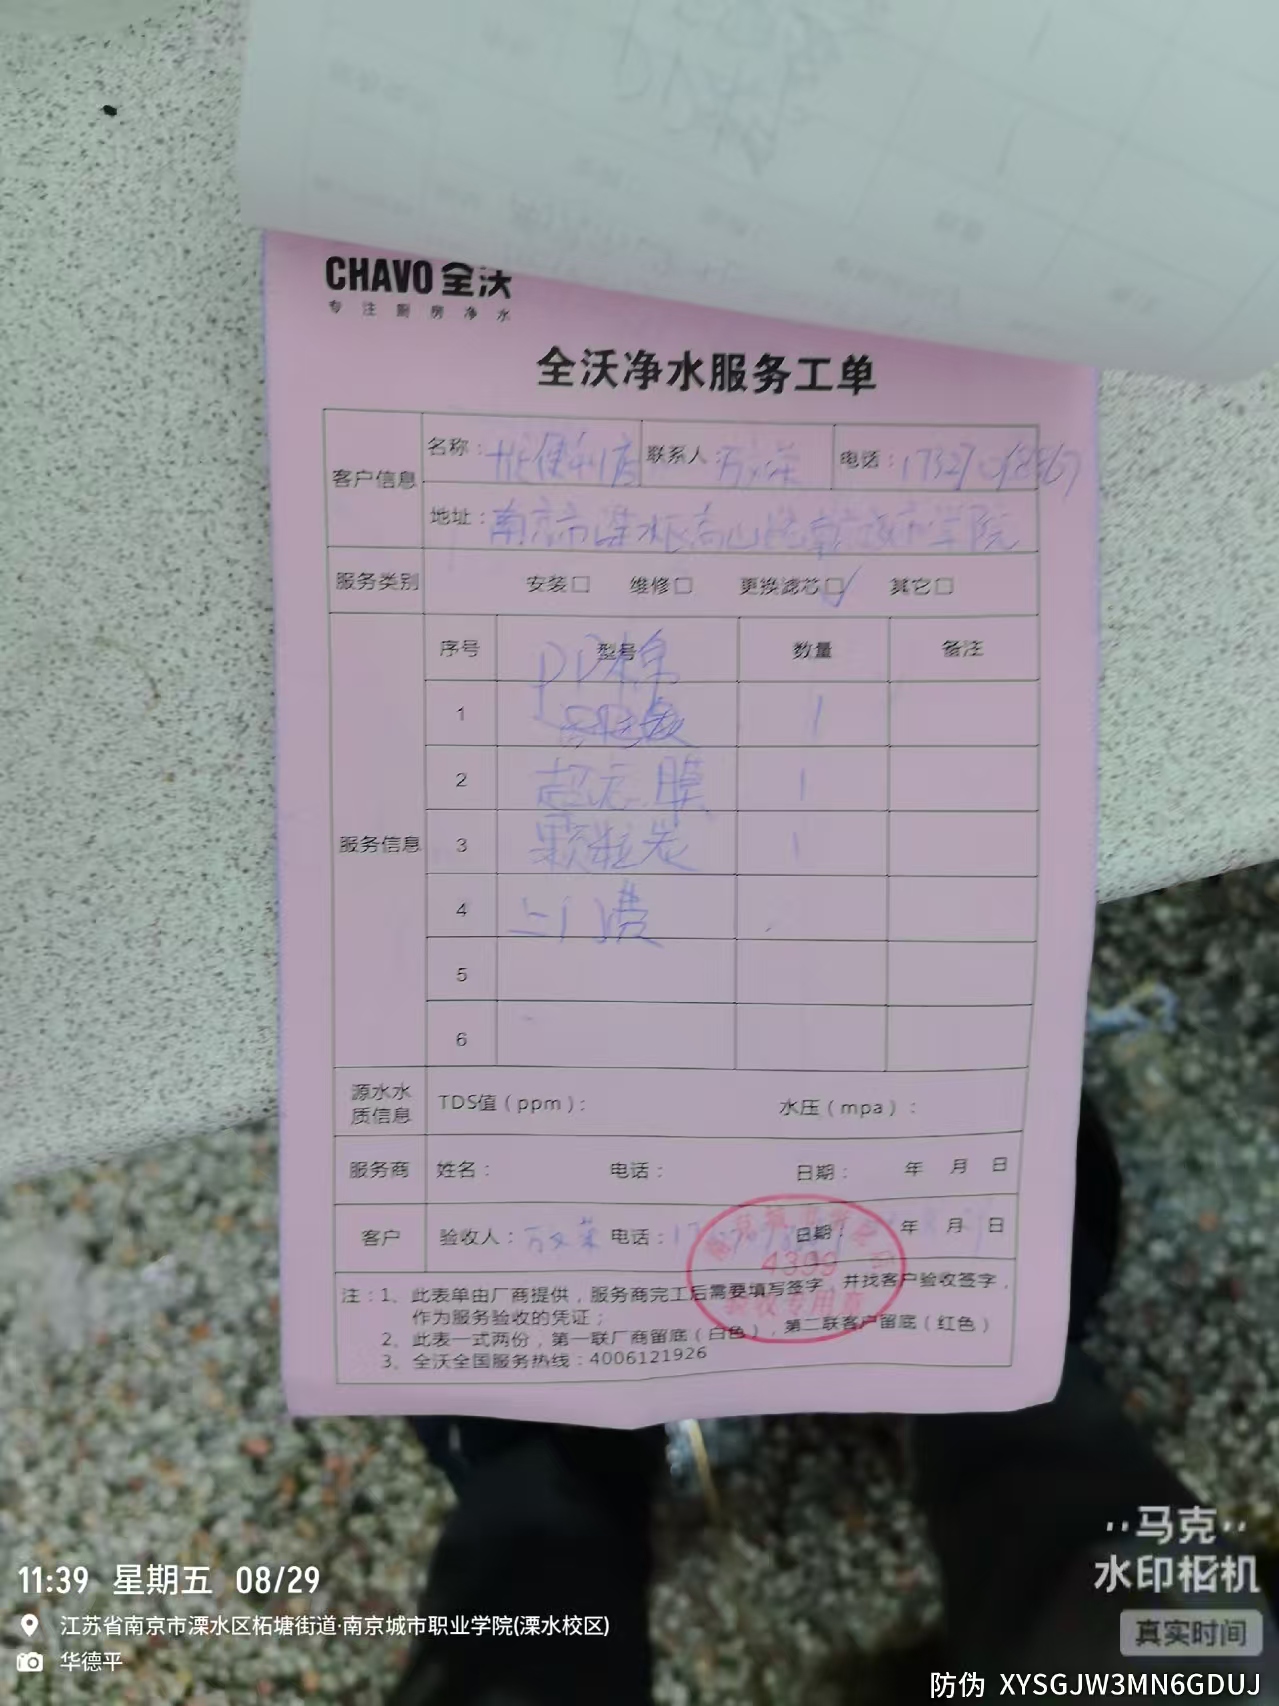 CHAVO 全沃
专注厨房净水
全沃净水服务工单
客户信息 名称： 便利店 联系人：万文荣 电话：
地址：南京市溧水区 城市学院
服务类别 安装□ 维修□ 更换滤芯□√ 其它□
服务信息 序号 型号 数量 备注
PP棉
1 1
2 超滤膜 1
3 颗粒炭 1
4 上门费
5
6
源水水质信息 TDS值（ppm）： 水压（mpa）：
服务商 姓名： 电话： 日期： 年 月 日
客户 验收人：万文荣 电话：17 日期： 年 月 日
4399
验收专用章
注：1、此表单由厂商提供，服务商完工后需要填写签字，并找客户验收签字，
作为服务验收的凭证；
2、此表一式两份，第一联厂商留底（白色），第二联客户留底（红色）
3、全沃全国服务热线：4006121926
11:39 星期五 08/29
江苏省南京市溧水区柘塘街道·南京城市职业学院(溧水校区)
华德平
马克
水印相机
真实时间
防伪 XYSGJW3MN6GDUJ